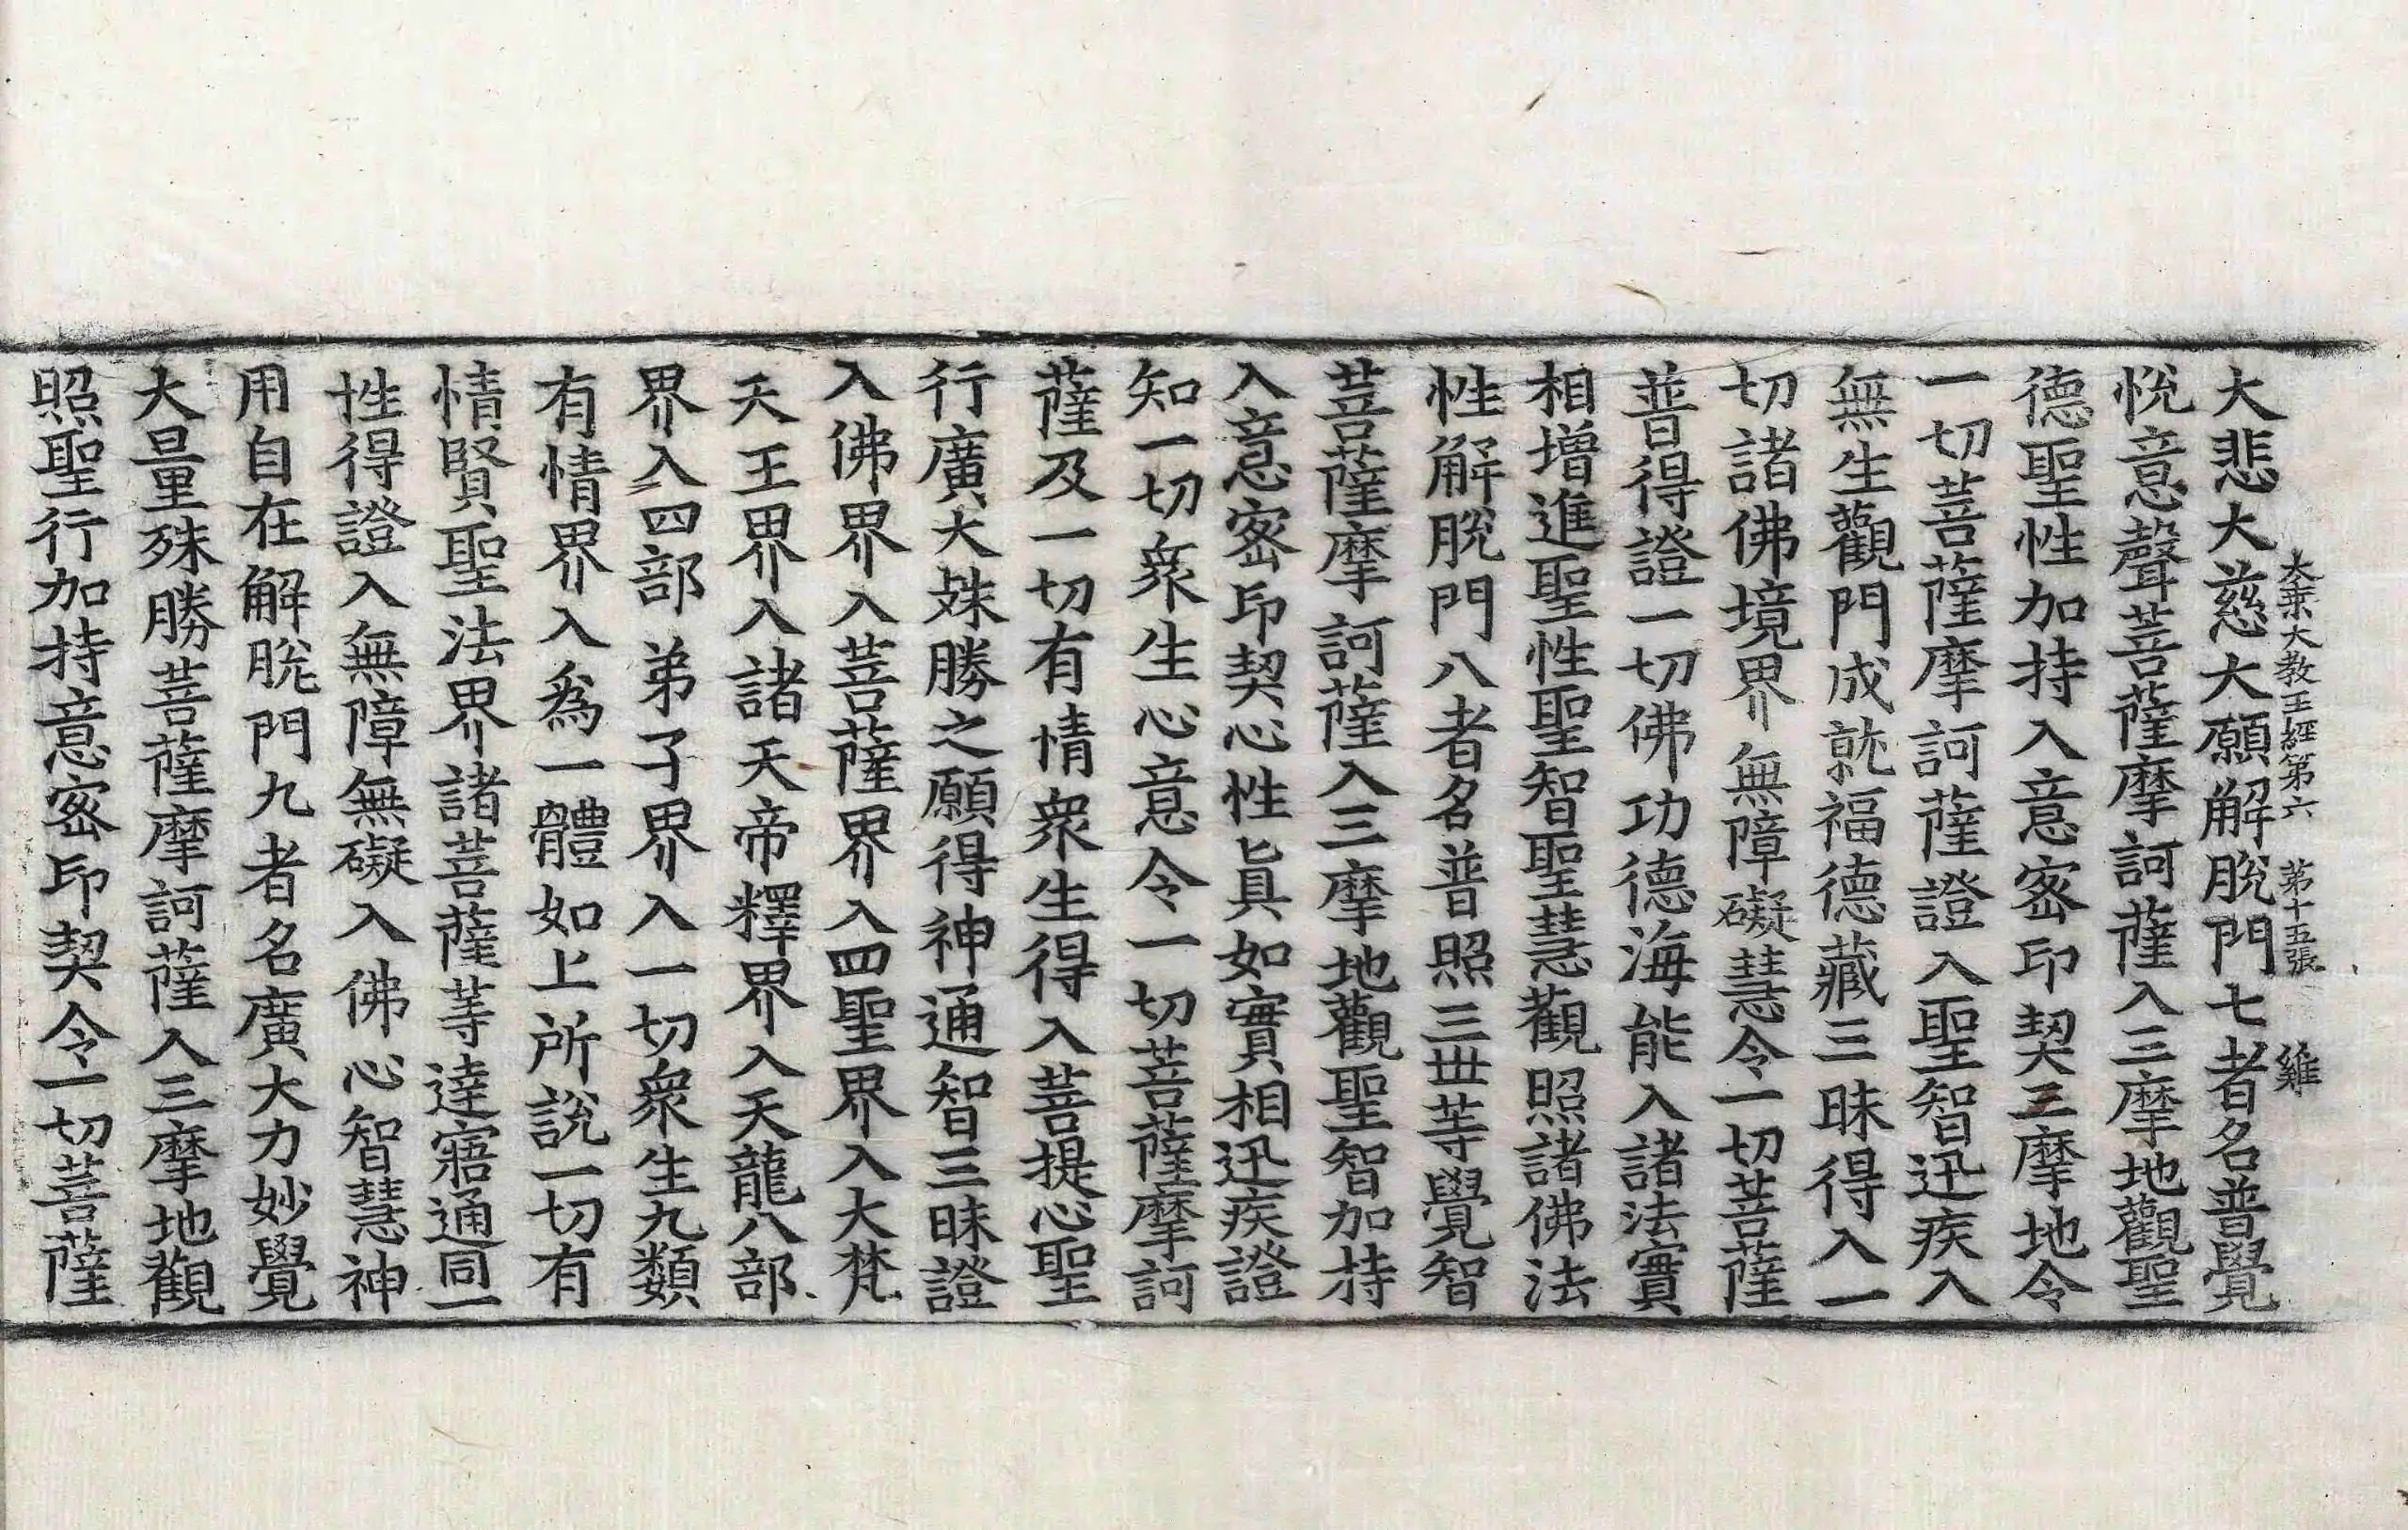 大乘大教王經第六 第十五張 雞
大悲大慈大願解脫門七者名普覺
悅意聲菩薩摩訶薩入三摩地觀聖
德聖性加持入意密印契三摩地令
一切菩薩摩訶薩證入聖智迅疾入
無生觀門成就福德藏三昧得入一
切諸佛境界無障礙慧令一切菩薩
普得證一切佛功德海能入諸法實
相增進聖性聖智聖慧觀照諸佛法
性解脫門八者名普照三世等覺智
菩薩摩訶薩入三摩地觀聖智加持
入意密印契心性眞如實相迅疾證
知一切衆生心意令一切菩薩摩訶
薩及一切有情衆生得入菩提心聖
行廣大殊勝之願得神通智三昧證
入佛界入菩薩界入四聖界入大梵
天王界入諸天帝釋界入天龍八部
界入四部弟子界入一切衆生九類
有情界入爲一體如上所說一切有
情賢聖法界諸菩薩等達寤通同一
性得證入無障無礙入佛心智慧神
用自在解脫門九者名廣大力妙覺
大量殊勝菩薩摩訶薩入三摩地觀
照聖行加持意密印契令一切菩薩